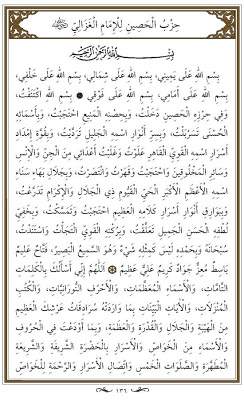 حِزْبُ الْحَصِينِ لِلْإِمَامِ الْغَزَالِيِّ
بِسْمِ اللهِ الرَّحْمٰنِ الرَّحِيمِ
بِسْمِ اللهِ عَلَى يَمِينِي، بِسْمِ اللهِ عَلَى شِمَالِي، بِسْمِ اللهِ عَلَى خَلْفِي،
بِسْمِ اللهِ عَلَى أَمَامِي، بِسْمِ اللهِ عَلَى فَوْقِي ۞ بِسْمِ اللهِ اكْتَنَفْتُ،
وَفِي حِرْزِهِ الْحَصِينِ دَخَلْتُ، وَبِحِصْنِهِ الْمَنِيعِ احْتَجَبْتُ، وَبِأَسْمَائِهِ
الْحُسْنَى تَسَرْبَلْتُ، وَبِسِرِّ أَنْوَارِ اسْمِهِ الْجَلِيلِ تَرَدَّيْتُ، وَبِقُوَّةِ إِمْدَادِ
أَسْرَارِ اسْمِهِ الْقَوِيِّ الْقَاهِرِ عَلَوْتُ وَغَلَبْتُ أَعْدَائِي مِنَ الْجِنِّ وَالْإِنْسِ
وَسَائِرِ الْمَخْلُوقِينَ وَاحْتَجَبْتُ وَقَهَرْتُ وَانْتَصَرْتُ، وَبِجَلَالِ بَهَاءِ سَنَاءِ
اسْمِهِ الْأَعْظَمِ الْأَكْبَرِ الْحَيِّ الْقَيُّومِ ذِي الْجَلَالِ وَالْإِكْرَامِ تَدَرَّعْتُ،
وَبِبَوَارِقِ أَنْوَارِ أَسْرَارِ كَلَامِهِ الْعَظِيمِ احْتَجَبْتُ وَتَمَسَّكْتُ، وَبِخَفِيِّ
لُطْفِهِ الْحَسَنِ الْجَمِيلِ تَعَزَّزْتُ، وَبِرُكْنِهِ الْقَوِيِّ الْتَجَأْتُ وَاسْتَنَدْتُ،
سُبْحَانَهُ وَبِحَمْدِهِ لَيْسَ كَمِثْلِهِ شَيْءٌ وَهُوَ السَّمِيعُ الْبَصِيرُ، فَتَّاحٌ عَلِيمٌ
بَاسِطٌ مُعِزٌّ جَوَادٌ كَرِيمٌ عَلِيٌّ عَظِيمٌ ۞ اَللّٰهُمَّ إِنِّي أَسْأَلُكَ بِالْكَلِمَاتِ
التَّامَّاتِ، وَالْأَسْمَاءِ الْمُعَظَّمَاتِ، وَالْأَحْرُفِ النُّورَانِيَّاتِ، وَالْكُتُبِ
الْمُنْزَلَاتِ، وَالْآيَاتِ الْبَيِّنَاتِ بِمَا وَارَتْهُ سُرَادِقَاتُ عَرْشِكَ الْعَظِيمِ
مِنَ الْهَيْبَةِ وَالْجَلَالِ وَالْقُدْرَةِ وَالْعَظَمَةِ، وَبِمَا أَوْدَعْتَ فِي الْحُرُوفِ
وَالْأَسْمَاءِ مِنَ الْخَوَاصِّ وَالْأَسْرَارِ بِالْحَضْرَةِ الشَّرِيفَةِ وَالشَّرِيعَةِ
الْمُطَهَّرَةِ وَالصَّلَوَاتِ الْخَمْسِ وَاتِّصَالِ الْأَسْرَارِ وَالرَّحْمَةِ لِلْخَوَاصِّ